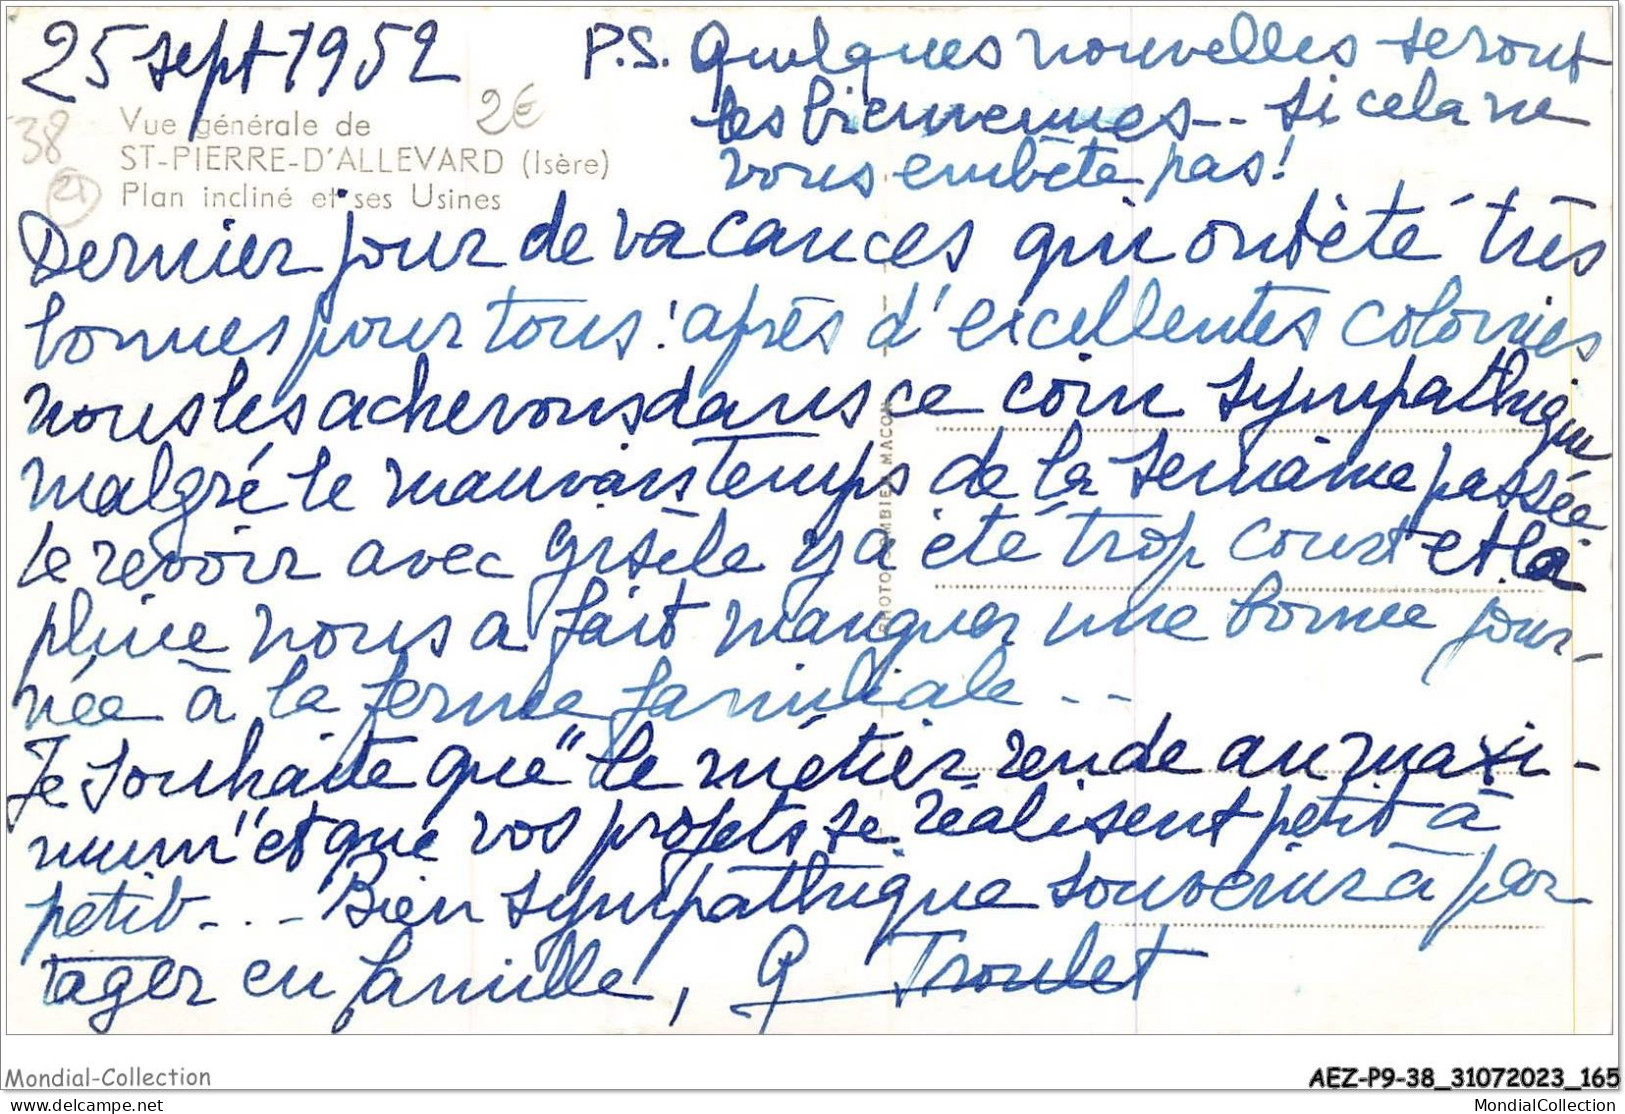 25 sept 1952
P.S. Quelques nouvelles seront
les bienvenues.. si cela ne
vous embête pas!
38
2€
21
Vue générale de
ST-PIERRE-D'ALLEVARD (Isère)
Plan incliné et ses Usines
Dernier jour de vacances qui ont été très
bonnes pour tous: après d'excellentes colonies
nous les achevons dans ce coin sympathique
malgré le mauvais temps de la semaine passée
le revoir avec Gisèle y a été trop court et la
pluie nous a fait manquer une bonne jour-
née à la ferme familiale ..
Je souhaite que "le métier rende au maxi-
mum" et que vos projets se réalisent petit à
petit... Bien sympathique souvenir à par
tager en famille, G Troulet
PHOTO COMBIER MACON
Mondial-Collection
AEZ-P9-38_31072023_165
Mondial-Collection.com
MondialCollection